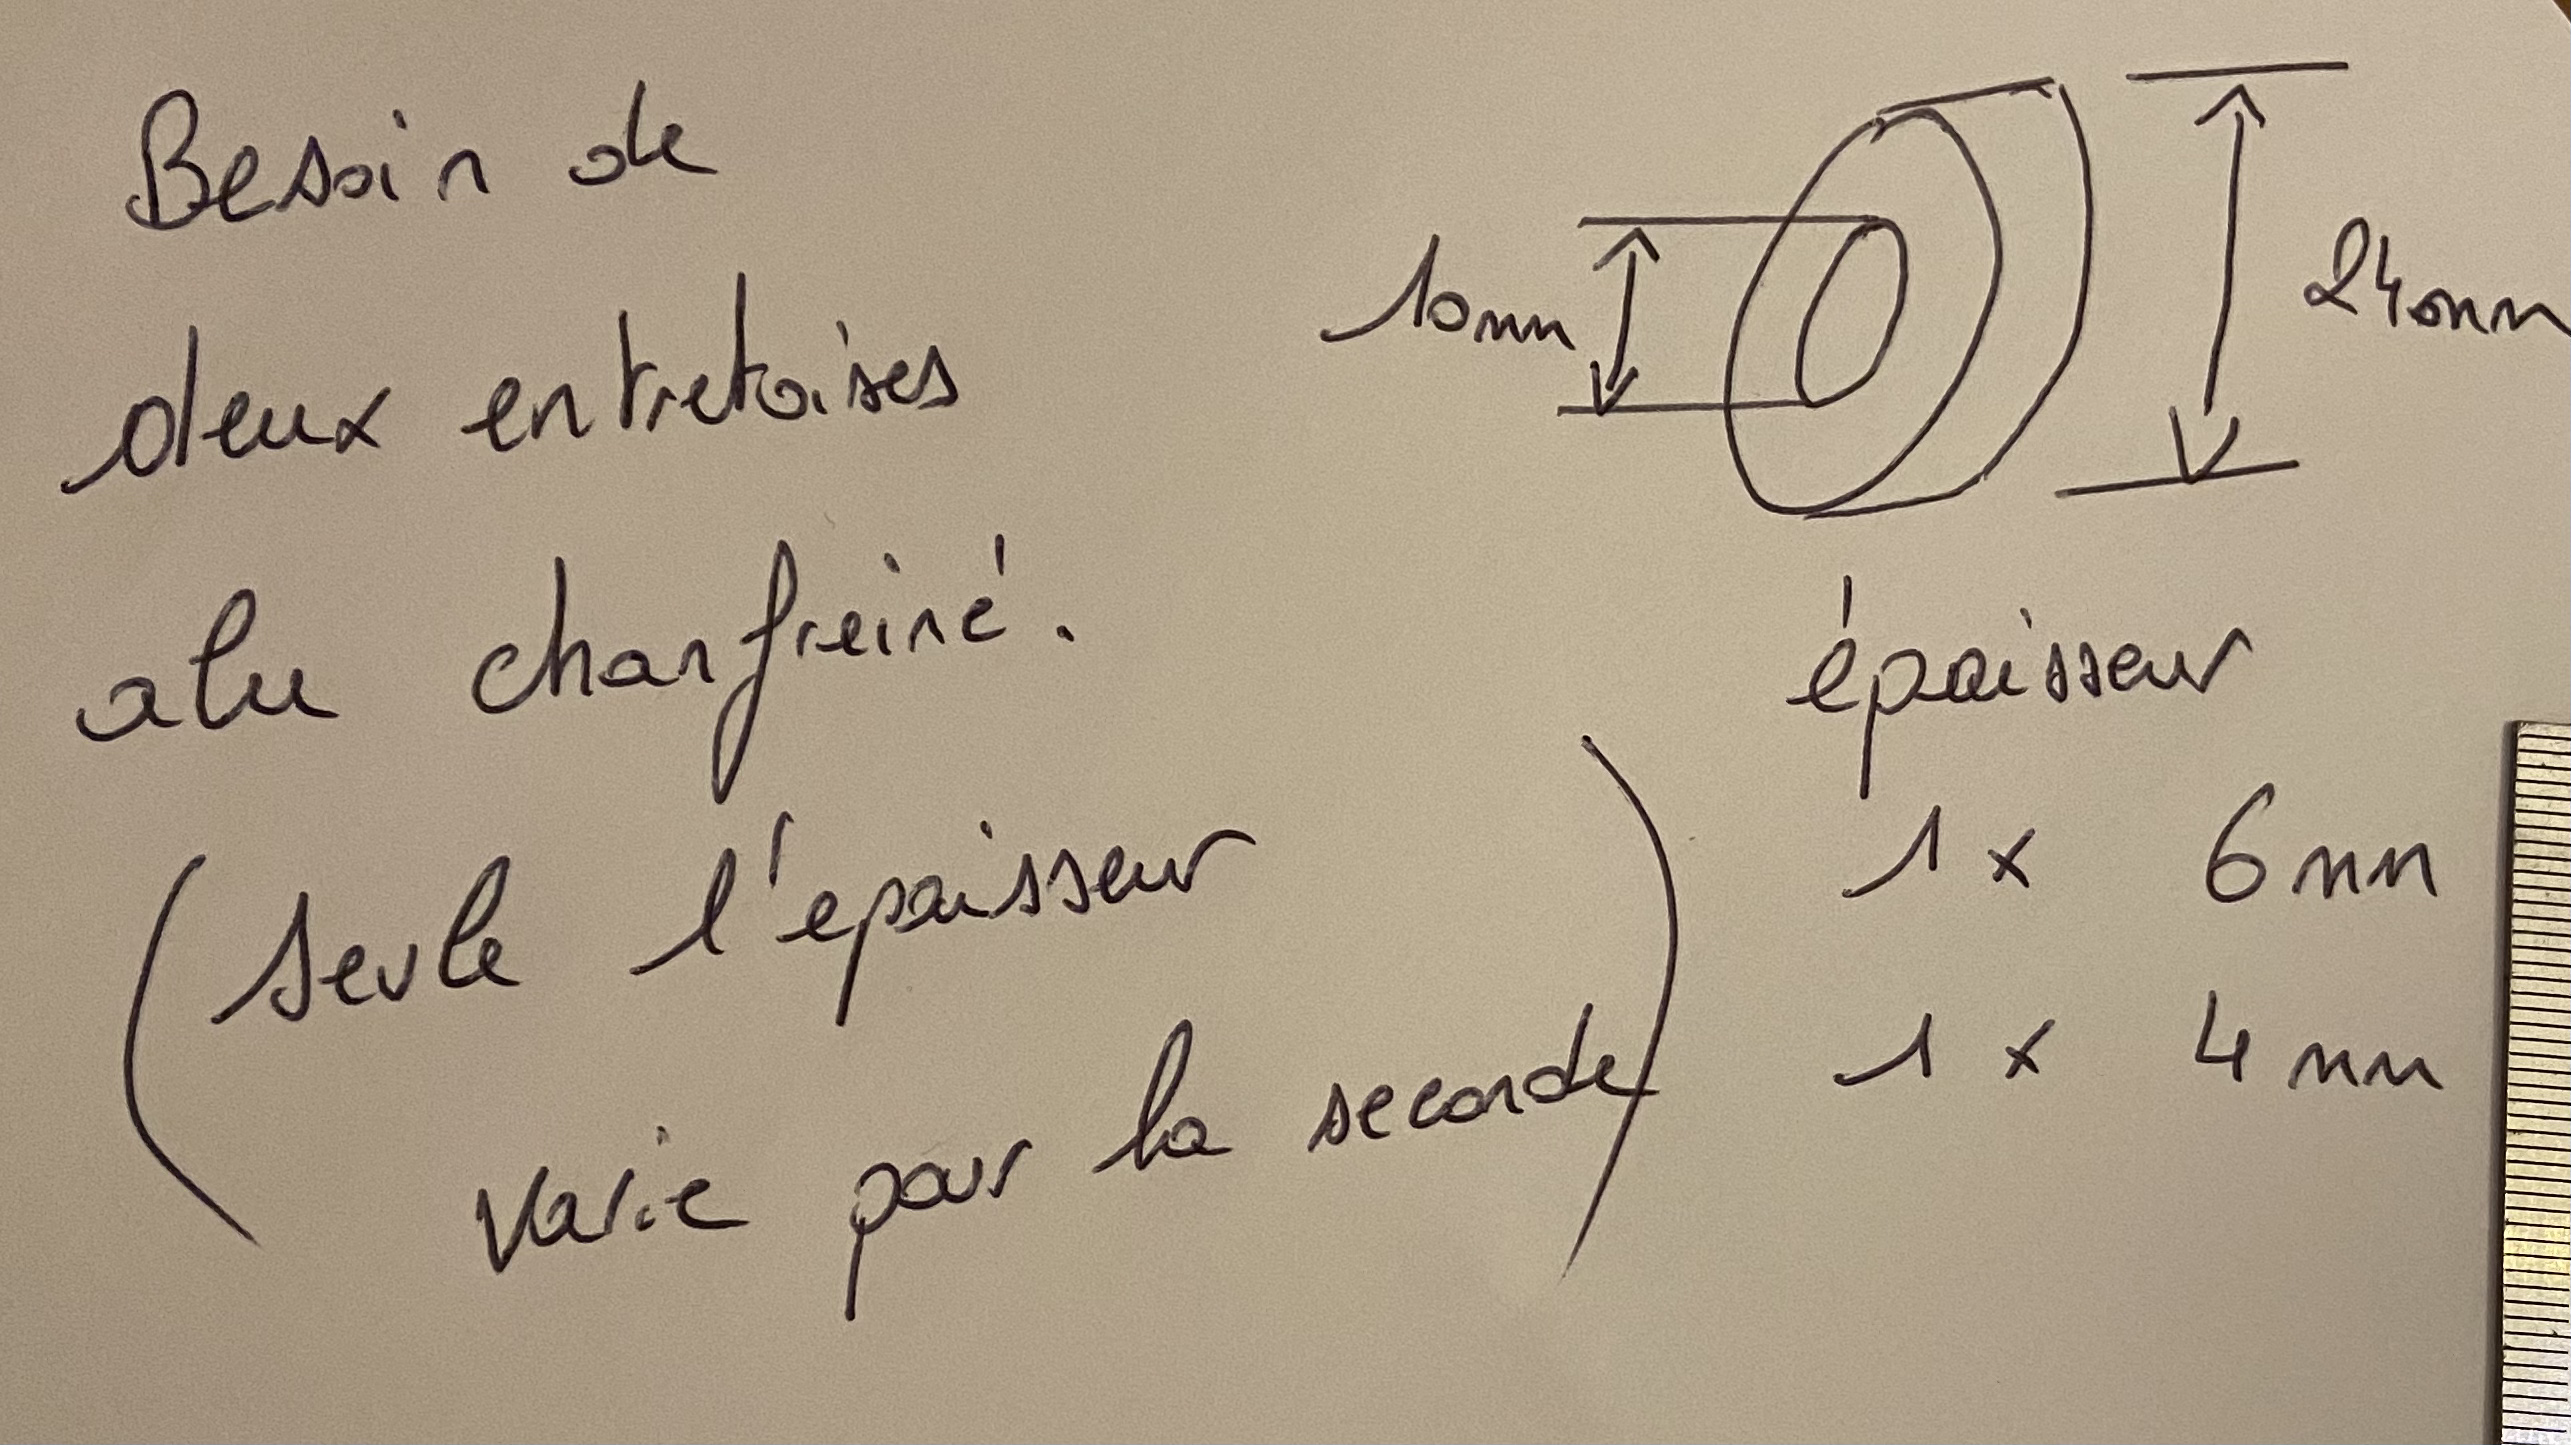 Besoin de
deux entretoises
alu chanfreiné.
(seule l'epaisseur
varie pour la seconde)
10mm
24mm
épaisseur
1 x 6mm
1 x 4mm